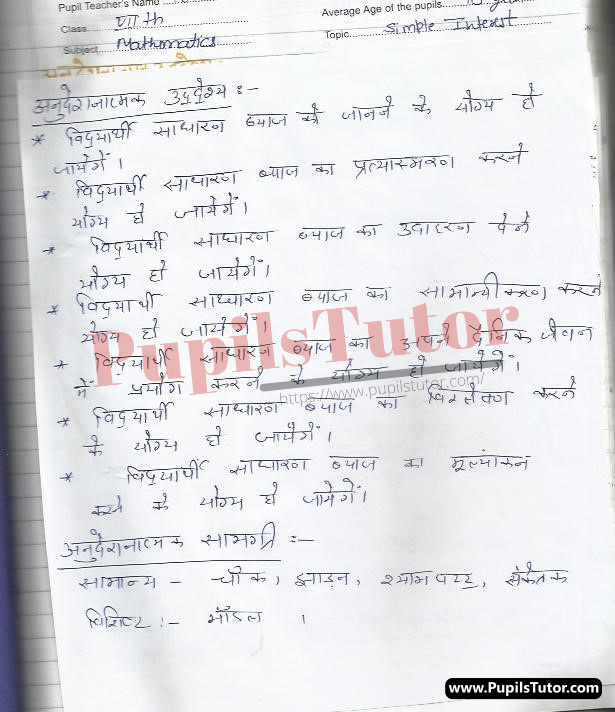 Pupil Teacher's Name
Average Age of the pupils
Class VII th
Topic Simple Interest
Subject Mathematics
अनुदेशनात्मक उद्देश्य :-
* विद्यार्थी साधारण ब्याज को जानने के योग्य हो
जायेगें ।
* विद्यार्थी साधारण ब्याज का प्रत्यास्मरण करने
योग्य हो जायेगें।
* विद्यार्थी साधारण ब्याज का उदाहरण देने
योग्य हो जायेगें।
* विद्यार्थी साधारण ब्याज का सामान्यीकरण करने
योग्य हो जायेगें।
* विद्यार्थी साधारण ब्याज का अपने दैनिक जीवन
में प्रयोग करने के योग्य हो जायेगें।
PupilsTutor
https://www.pupilstutor.com/
* विद्यार्थी साधारण ब्याज का विश्लेषण करने
के योग्य हो जायेगें।
* विद्यार्थी साधारण ब्याज का मूल्यांकन
करने के योग्य हो जायेगें।
अनुदेशनात्मक सामग्री :-
सामान्य - चॉक, झाड़न, श्यामपट्ट, संकेतक
विशिष्ट :- मॉडल ।
www.PupilsTutor.Com